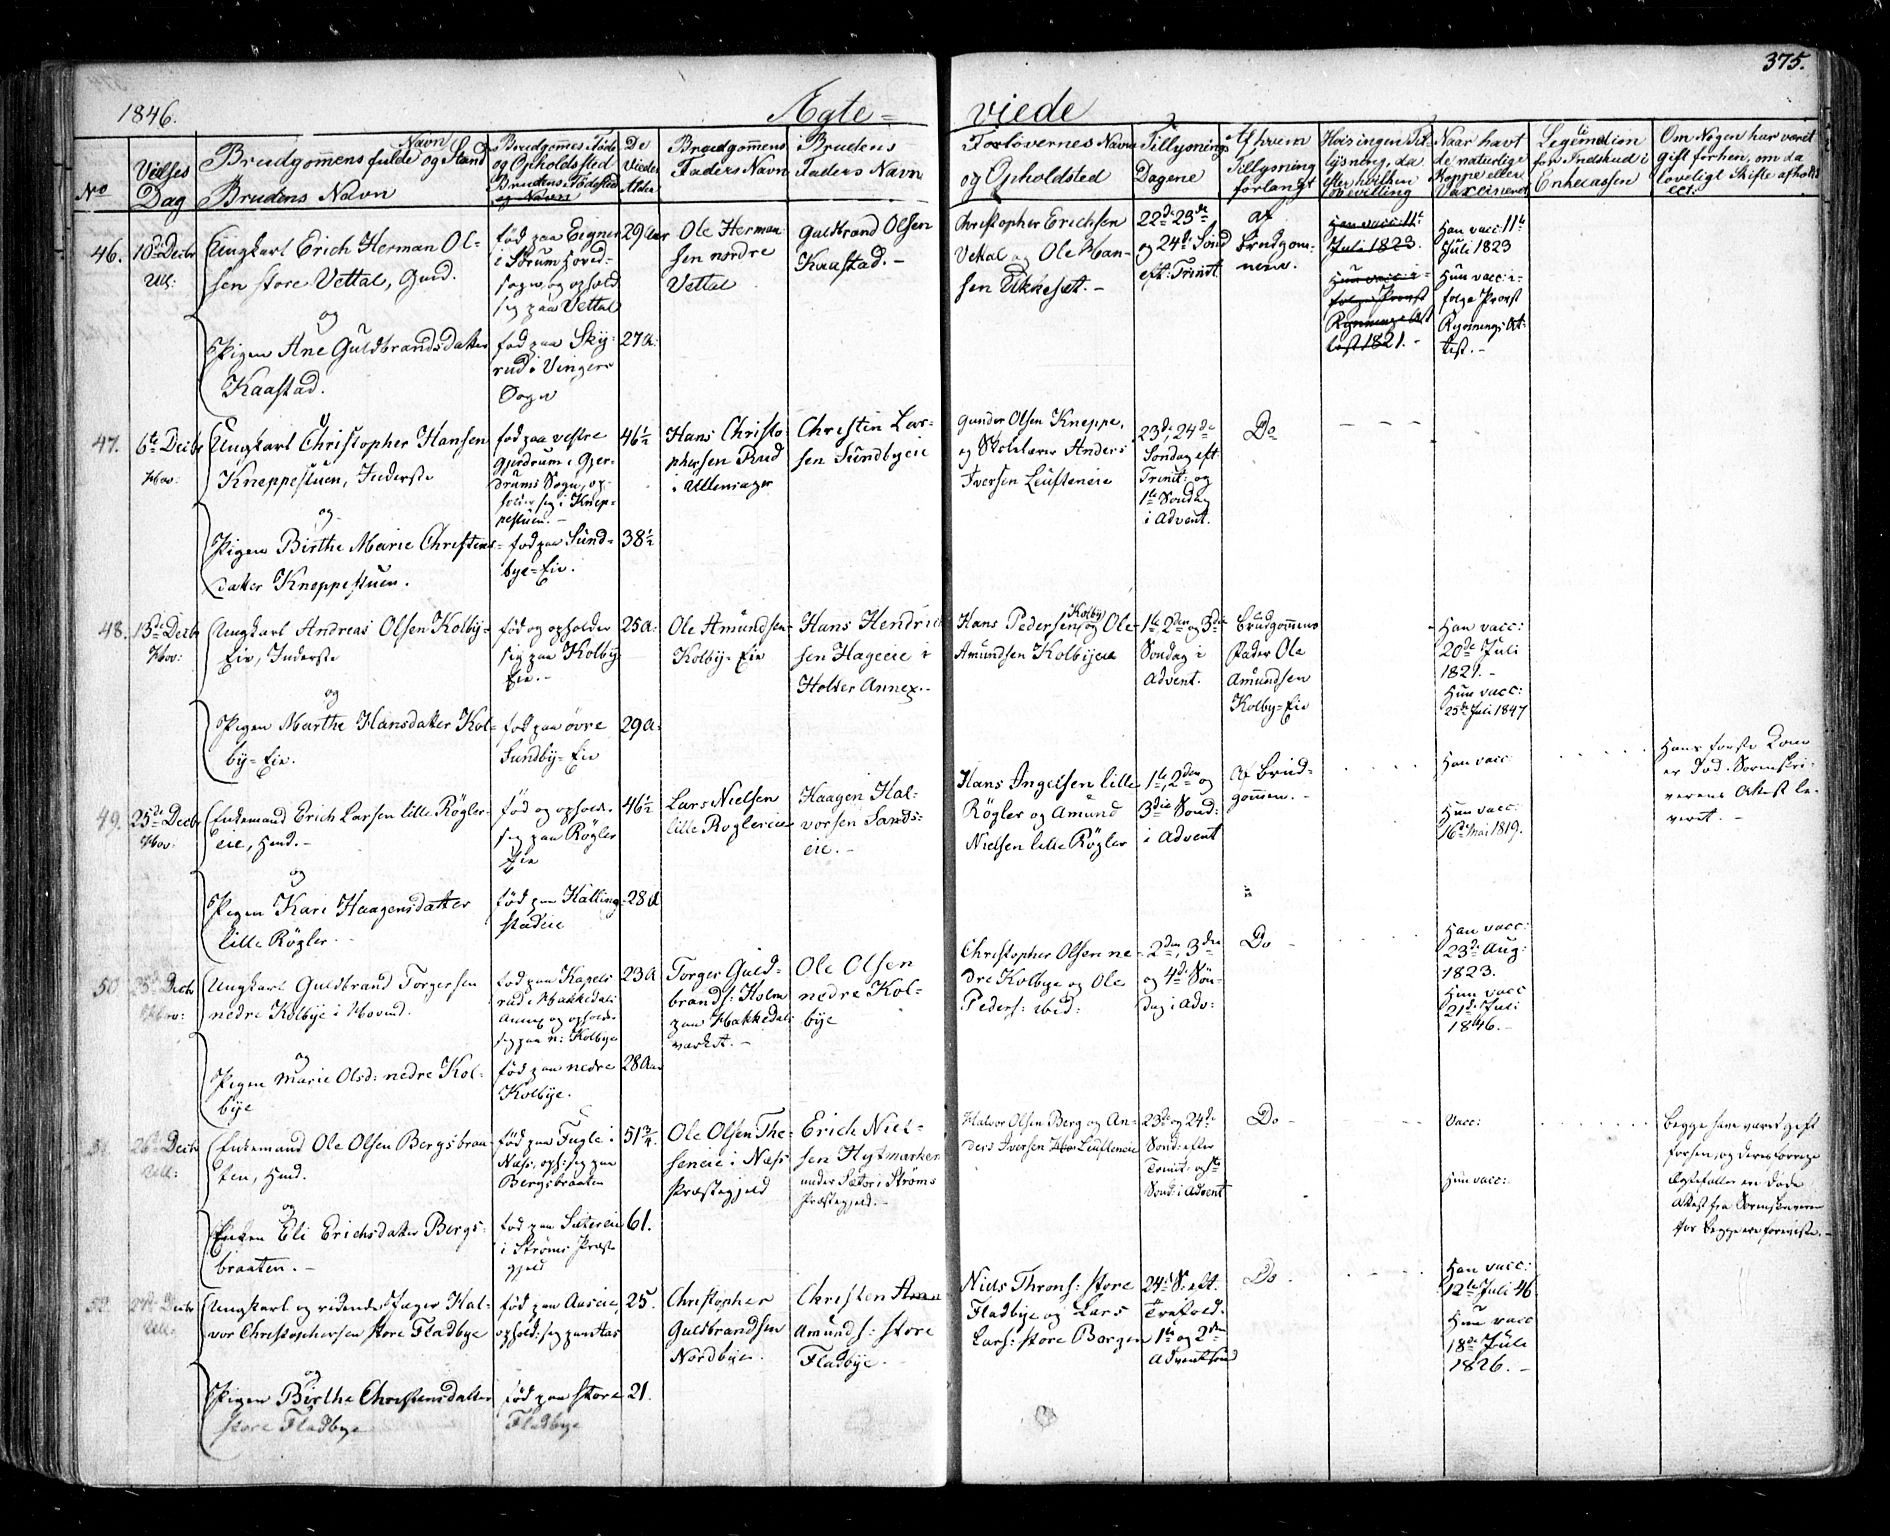 375.
1846.
Ægte=
viede
No
Vielses
Dag
Brudgommens fulde Navn og Stand
Brudens Navn
Brudgommens Føde
og Opholdssted
Brudens Fødested
og Navn
De
Viedes
Alder
Brudgommens
Faders Navn
Brudens
Faders Navn
Forlovernes Navn
og Opholdsted
Tillysnings
Dagene
Af hvem
Tillysning
forlangt
Naar havt
de naturlige
Kopper eller
Vaccineret
Legitimation
for Indskud i
Enkecassen
Om Nogen har været
gift forhen, om da
lovligt Skifte afholdt
ect:
46.
10de Decbr
Ull:
Ungkarl Erich Herman Ol-
sen store Vettal, Gmd.
og
Pigen Ane Guldbrandsdatter
Kaastad.
fød paa Eigner
i Sørum Hoved-
sogn, og ophold
sig paa Vettal
fød paa Sky-
rud i Vinger
Sogn
29 Aar
27 A:
Ole Herman
sen nordre
Vettal
Guldbrand Olsen
Kaastad. -
Christopher Erichsen
Vekal og Ole Han-
sen Ukkeset. -
22de 23de
og 24de Sønd
eft: Trinit
af
Brudgom-
men.
Han vacc: 11te
Juli 1823.
Hun vacc: i-
følge Provst
Rynnings At
test 1821. -
Han vacc: 11te
Juli 1823
Hun vacc: i-
følge Provst
Rynnings At:
test. -
47.
6te Decbr
Hov:
Ungkarl Christopher Hansen
Kneppestuen, Inderste
og
Pigen Birthe Marie Christens-
datter Kneppestuen.
fød paa vestre
Gjerdrum i Gjer-
drums Sogn, op-
holder sig i Knep-
pestuen. -
fød paa Sund-
bye-Eie.
46½
38½
Hans Christo-
phersen Rud
i Ullensager
Christen Lar-
sen Sundbyeie
Gunder Olsen Kneppe,
og Skolelærer Anders
Iversen Leufteneie
23de, 24de
Søndag eft
Trinit: og
1ste Søndag
i Advent.
Do
48.
13de Decbr
Hov:
Ungkarl Andreas Olsen Kolby-
Eie, Inderste
og
Pigen Marthe Hansdatter Kol-
by-Eie.
fød og opholder
sig paa Kolby
Eie. -
fød paa øvre
Sundby-Eie
25 A:
29 A:
Ole Amundsen
Kolby-Eie
Hans Hendrich
sen Hageeie i
Holter Annex. -
Hans Pedersen Kolby og Ole
Amundsen Kolbyeie
1ste, 2den og 3die
Søndag i
Advent.
Brudgommens
Fader Ole
Amundsen
Kolby-Eie
Han vacc:
20de Juli
1821. -
Hun vacc:
25de Juli 1847
49.
25de Decbr
Hov:
Enkemand Erich Larsen lille Røgler-
eie, Hmd. -
og
Pigen Kari Haagensdatter
lille Røgler. -
fød og opholder
sig paa Røgler
Eie
fød paa Kalling-
stadeie
46½
28 A
Lars Nielsen
lille Røglereie
Haagen Hal-
vorsen Sands-
eie. -
Hans Ingelsen lille
Røgler og Amund
Nielsen lille Røgler
1ste, 2den og
3die Sønd:
i Advent
Af Brud-
gommen. -
Han vacc:
Hun vacc:
16de Mai 1819.
Hans første Kone
er død. Sorenskri-
verens Attest le-
veret. -
50
Ungkarl Guldbrand Torgersen
nedre Kolbye i Hovind.
og
Pigen Marie Olsd: nedre Kol-
bye
fød paa Kagels
rud i Hakkedals
Annex og opholder
sig paa n: Kolbye
fød paa nedre
Kolbye.
23 A
28 Aar
Torger Guld-
brands: Holm
paa Hakkedals
værket. -
Ole Olsen
nedre Kol-
bye
Christopher Olsen ne-
dre Kolbye og Ole
Peders: ibid:
2den, 3die
og 4de Søn-
dag i Adv:
Do -
Han vacc:
23de Aug:
1823.
Hun vacc
21de Juli
1846. -
51.
26de Decbr
Ull:
Enkemand Ole Olsen Bergsbraa-
ten, Hmd.
og
Enken Eli Erichsdatter Bergs-
braaten. -
fød paa Fugle i
Næss, oph: sig paa
Bergsbraaten
fød paa Sætereie
i Strøms Præste
gjeld
51¾
61.
Ole Olsen The-
seneie i Næss
Præstegjeld
Erich Niel-
sen Hytmarken
under Sæter i Strøms
Præstegjeld. -
Halvor Olsen Berg og An-
ders Iversen Leufteneie
23de og 24de
Sønd: efter
Trinit: og 1ste
Sønd: i Advent
Do -
Vacc:
Hun vacc:
Begge have været gift
forhen, og deres forrige
Ægtefæller ere døde
Attest fra Sorenskriveren
for begge ere foreviste. -
52.
Ull:
Ungkarl og ridende Jæger Hal-
vor Christophersen store Fladbye
og
Pigen Birthe Christensdatter
store Fladbye
fød paa Aaseie,
ophold: sig paa Aas
fød paa store
Fladbye
25.
21.
Christopher
Guldbrandsen
Nordbye.
Christen
Amunds: store
Fladbye. -
Niels Throns: store
Fladbye og Lars
Lars: store Bargen
24de S: eft.
Trefold.
1ste og 2den
Adventsønd
Do -
Han vacc:
12te Juli 46
Hun vacc
18de Juli
1826. -